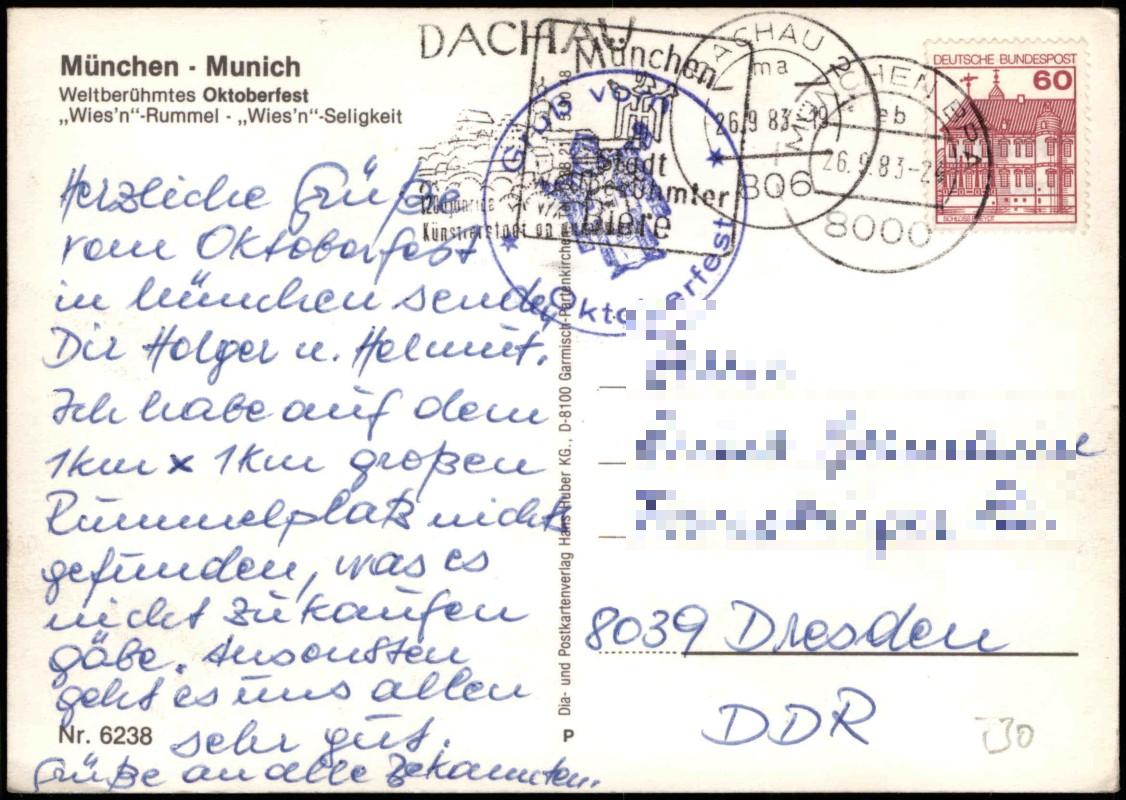 München · Munich
Weltberühmtes Oktoberfest
„Wies'n“-Rummel - „Wies'n“-Seligkeit
DACHAU
München
Stadt
berühmter
Biere
1200jährige
Künstlerstadt
Gruß vom
Oktoberfest
DACHAU 2
ma
26.9.83-19
806
MÜNCHEN BPA
eb
26.9.83-2
8000
DEUTSCHE BUNDESPOST
60
Herzliche Grüße
vom Oktoberfest
in München senden
Dir Holger u. Helmut.
Ich habe auf dem
1km x 1km großen
Rummelplatz nichts
gefunden, was es
nicht zu kaufen
gäbe. Ansonsten
geht es uns allen
sehr gut.
Grüße an alle Bekannten.
Nr. 6238
Dia- und Postkartenverlag Hans Huber KG., D-8100 Garmisch-Partenkirchen
P
8039 Dresden
DDR